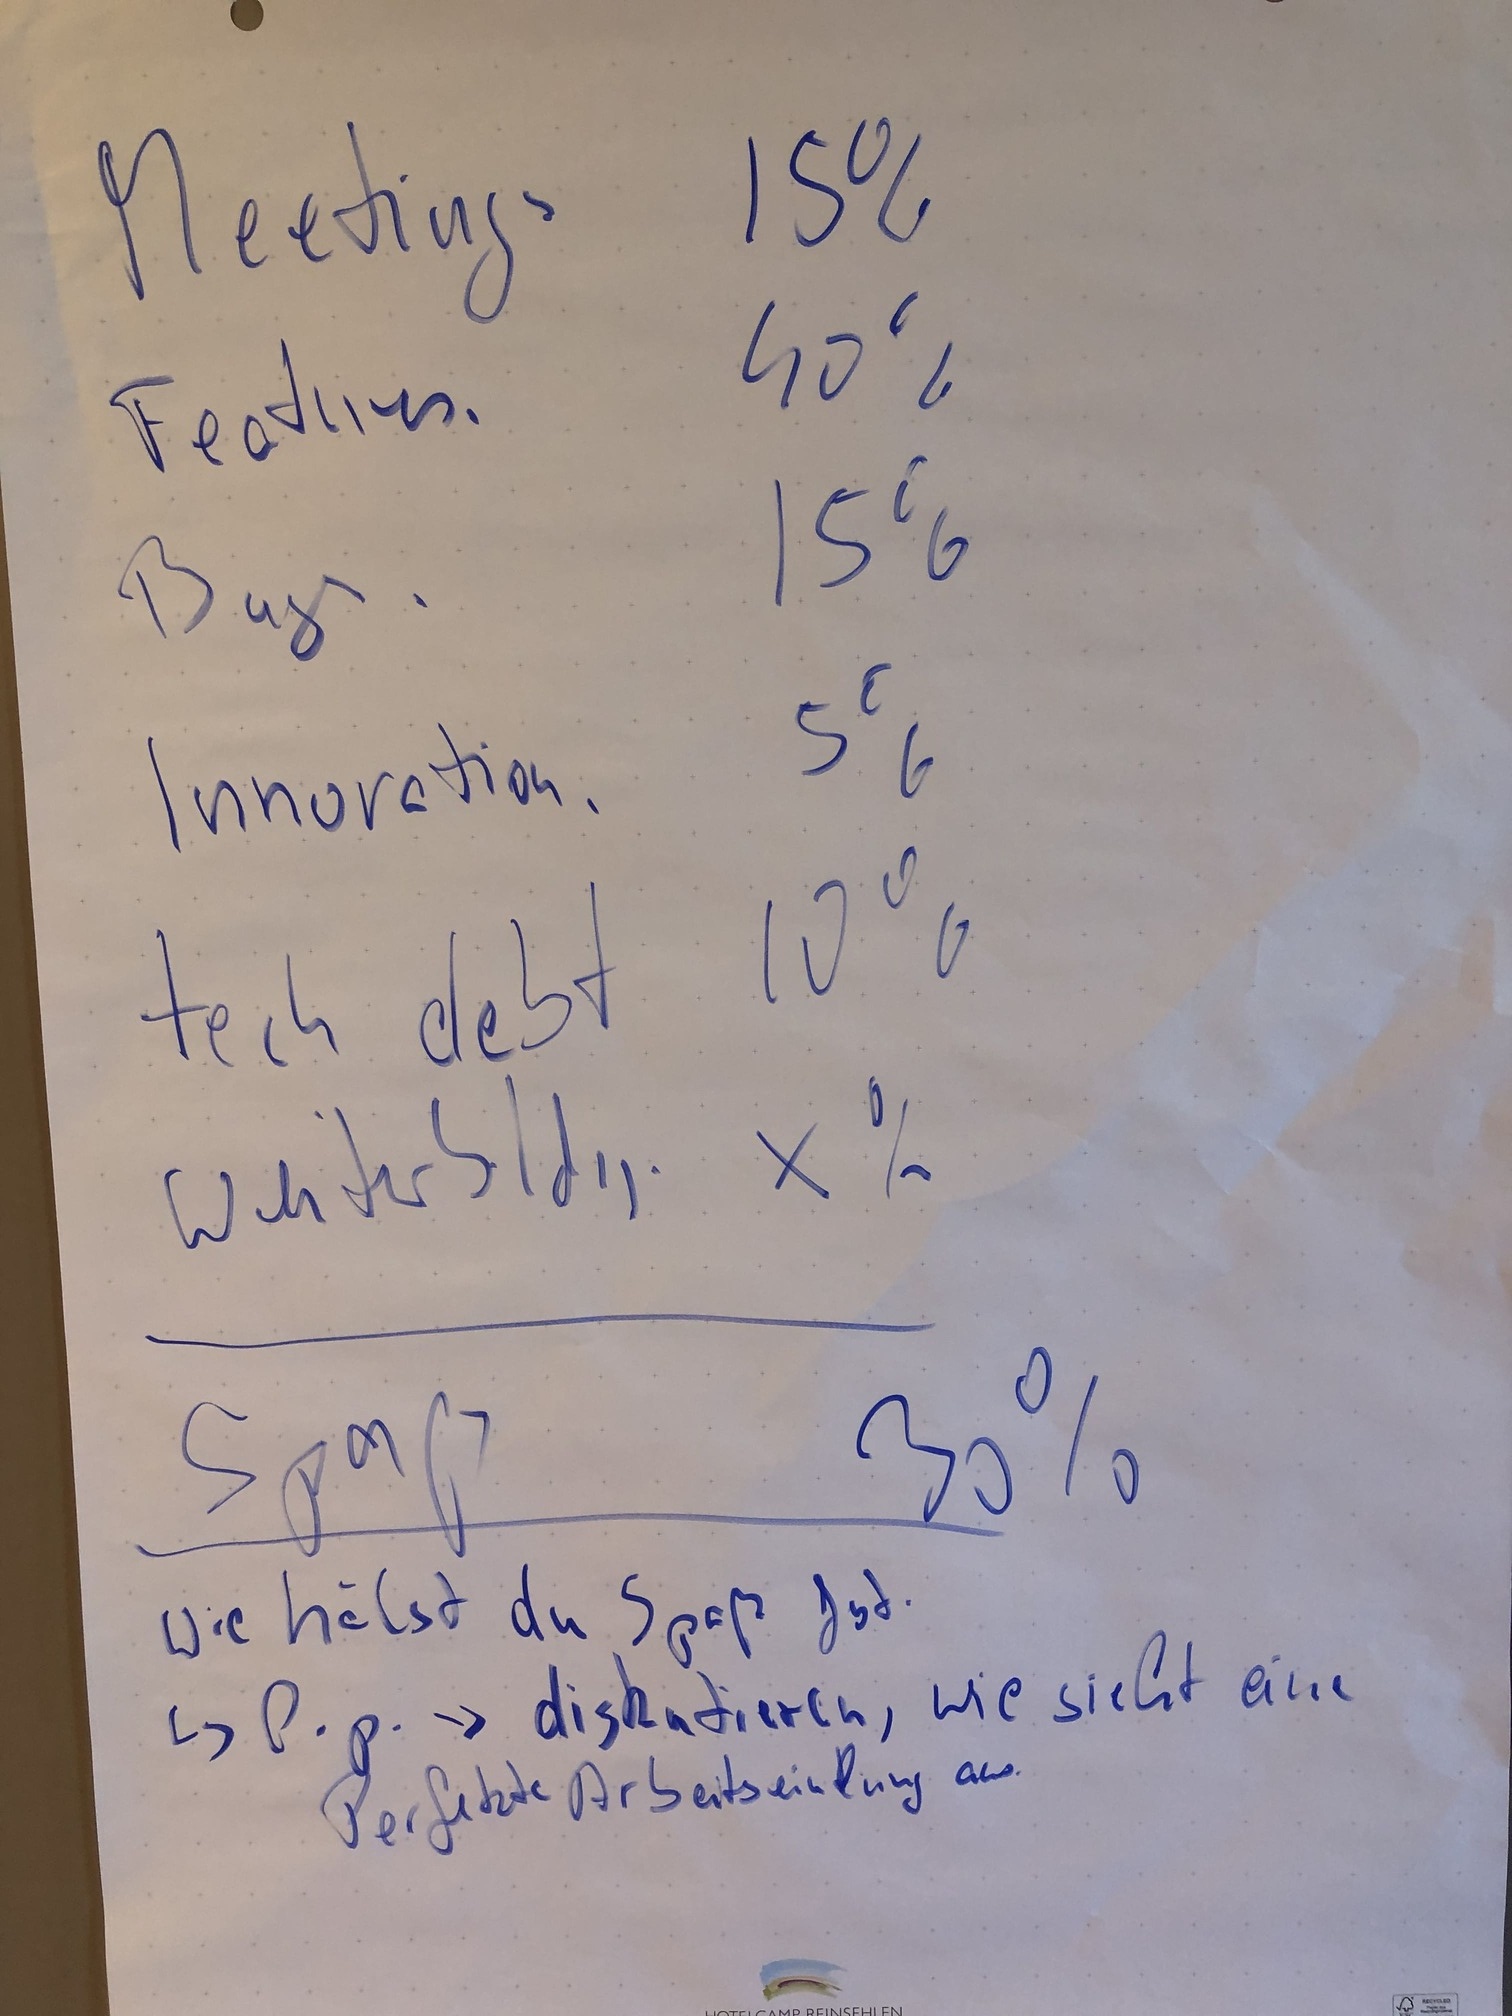 Meetings 15%
Features. 40%
Bugs. 15%
Innovation. 5%
tech debt 10%
Weiterbildg. x%
Spaß 30%
Wie hälst du Spaß fest.
↳ P.p. → diskutieren, wie sieht eine
Perfekte Arbeitseinteilung aus.
HOTELCAMP REINSEHLEN
RECYCLED